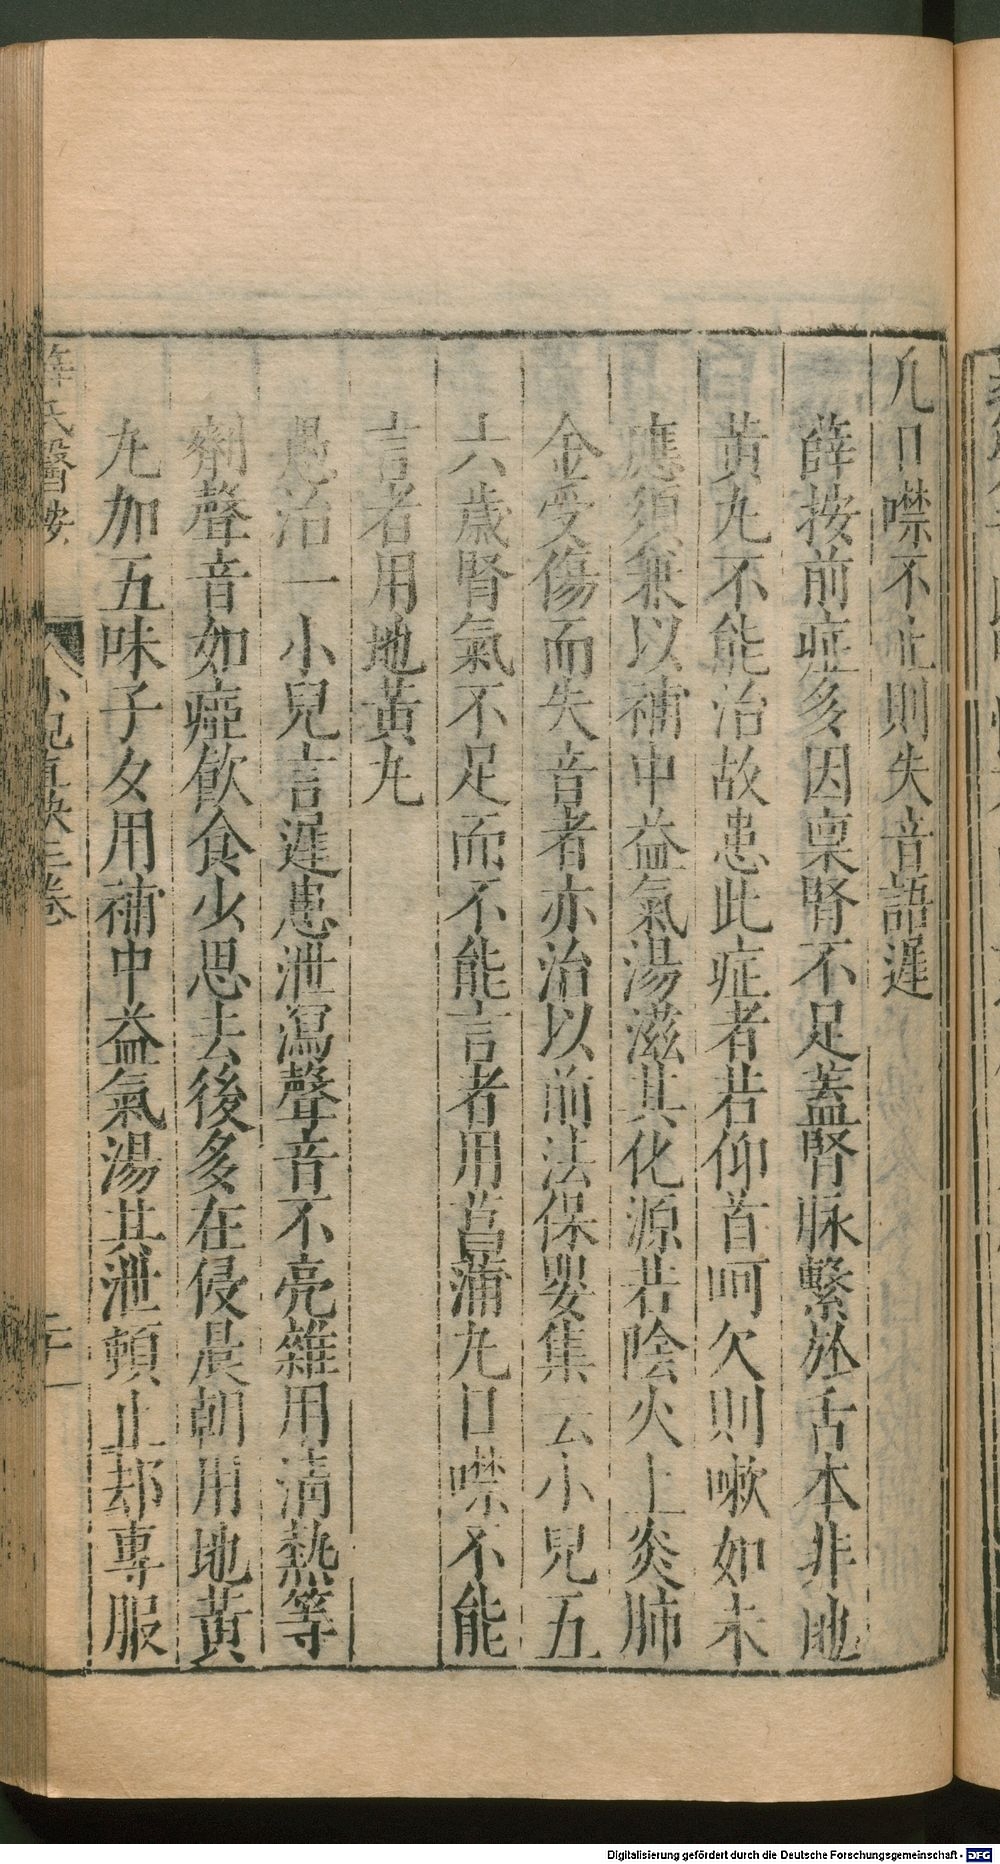 凡口噤不止則失音語遲
薛按前症多因稟腎不足蓋腎脉繫於舌本非地
黃丸不能治故患此症者若仰首呵欠則嗽如未
應須兼以補中益氣湯滋其化源若陰火上炎肺
金受傷而失音者亦治以前法保嬰集云小兒五
六歲腎氣不足而不能言者用菖蒲丸口噤不能
言者用地黃丸
愚治一小兒言遲患泄瀉聲音不亮雜用清熱等
劑聲音如瘂飲食少思去後多在侵晨朝用地黃
丸加五味子夕用補中益氣湯其泄頓止却專服
薛氏醫按
小兒直訣二卷
Digitalisierung gefördert durch die Deutsche Forschungsgemeinschaft - DFG